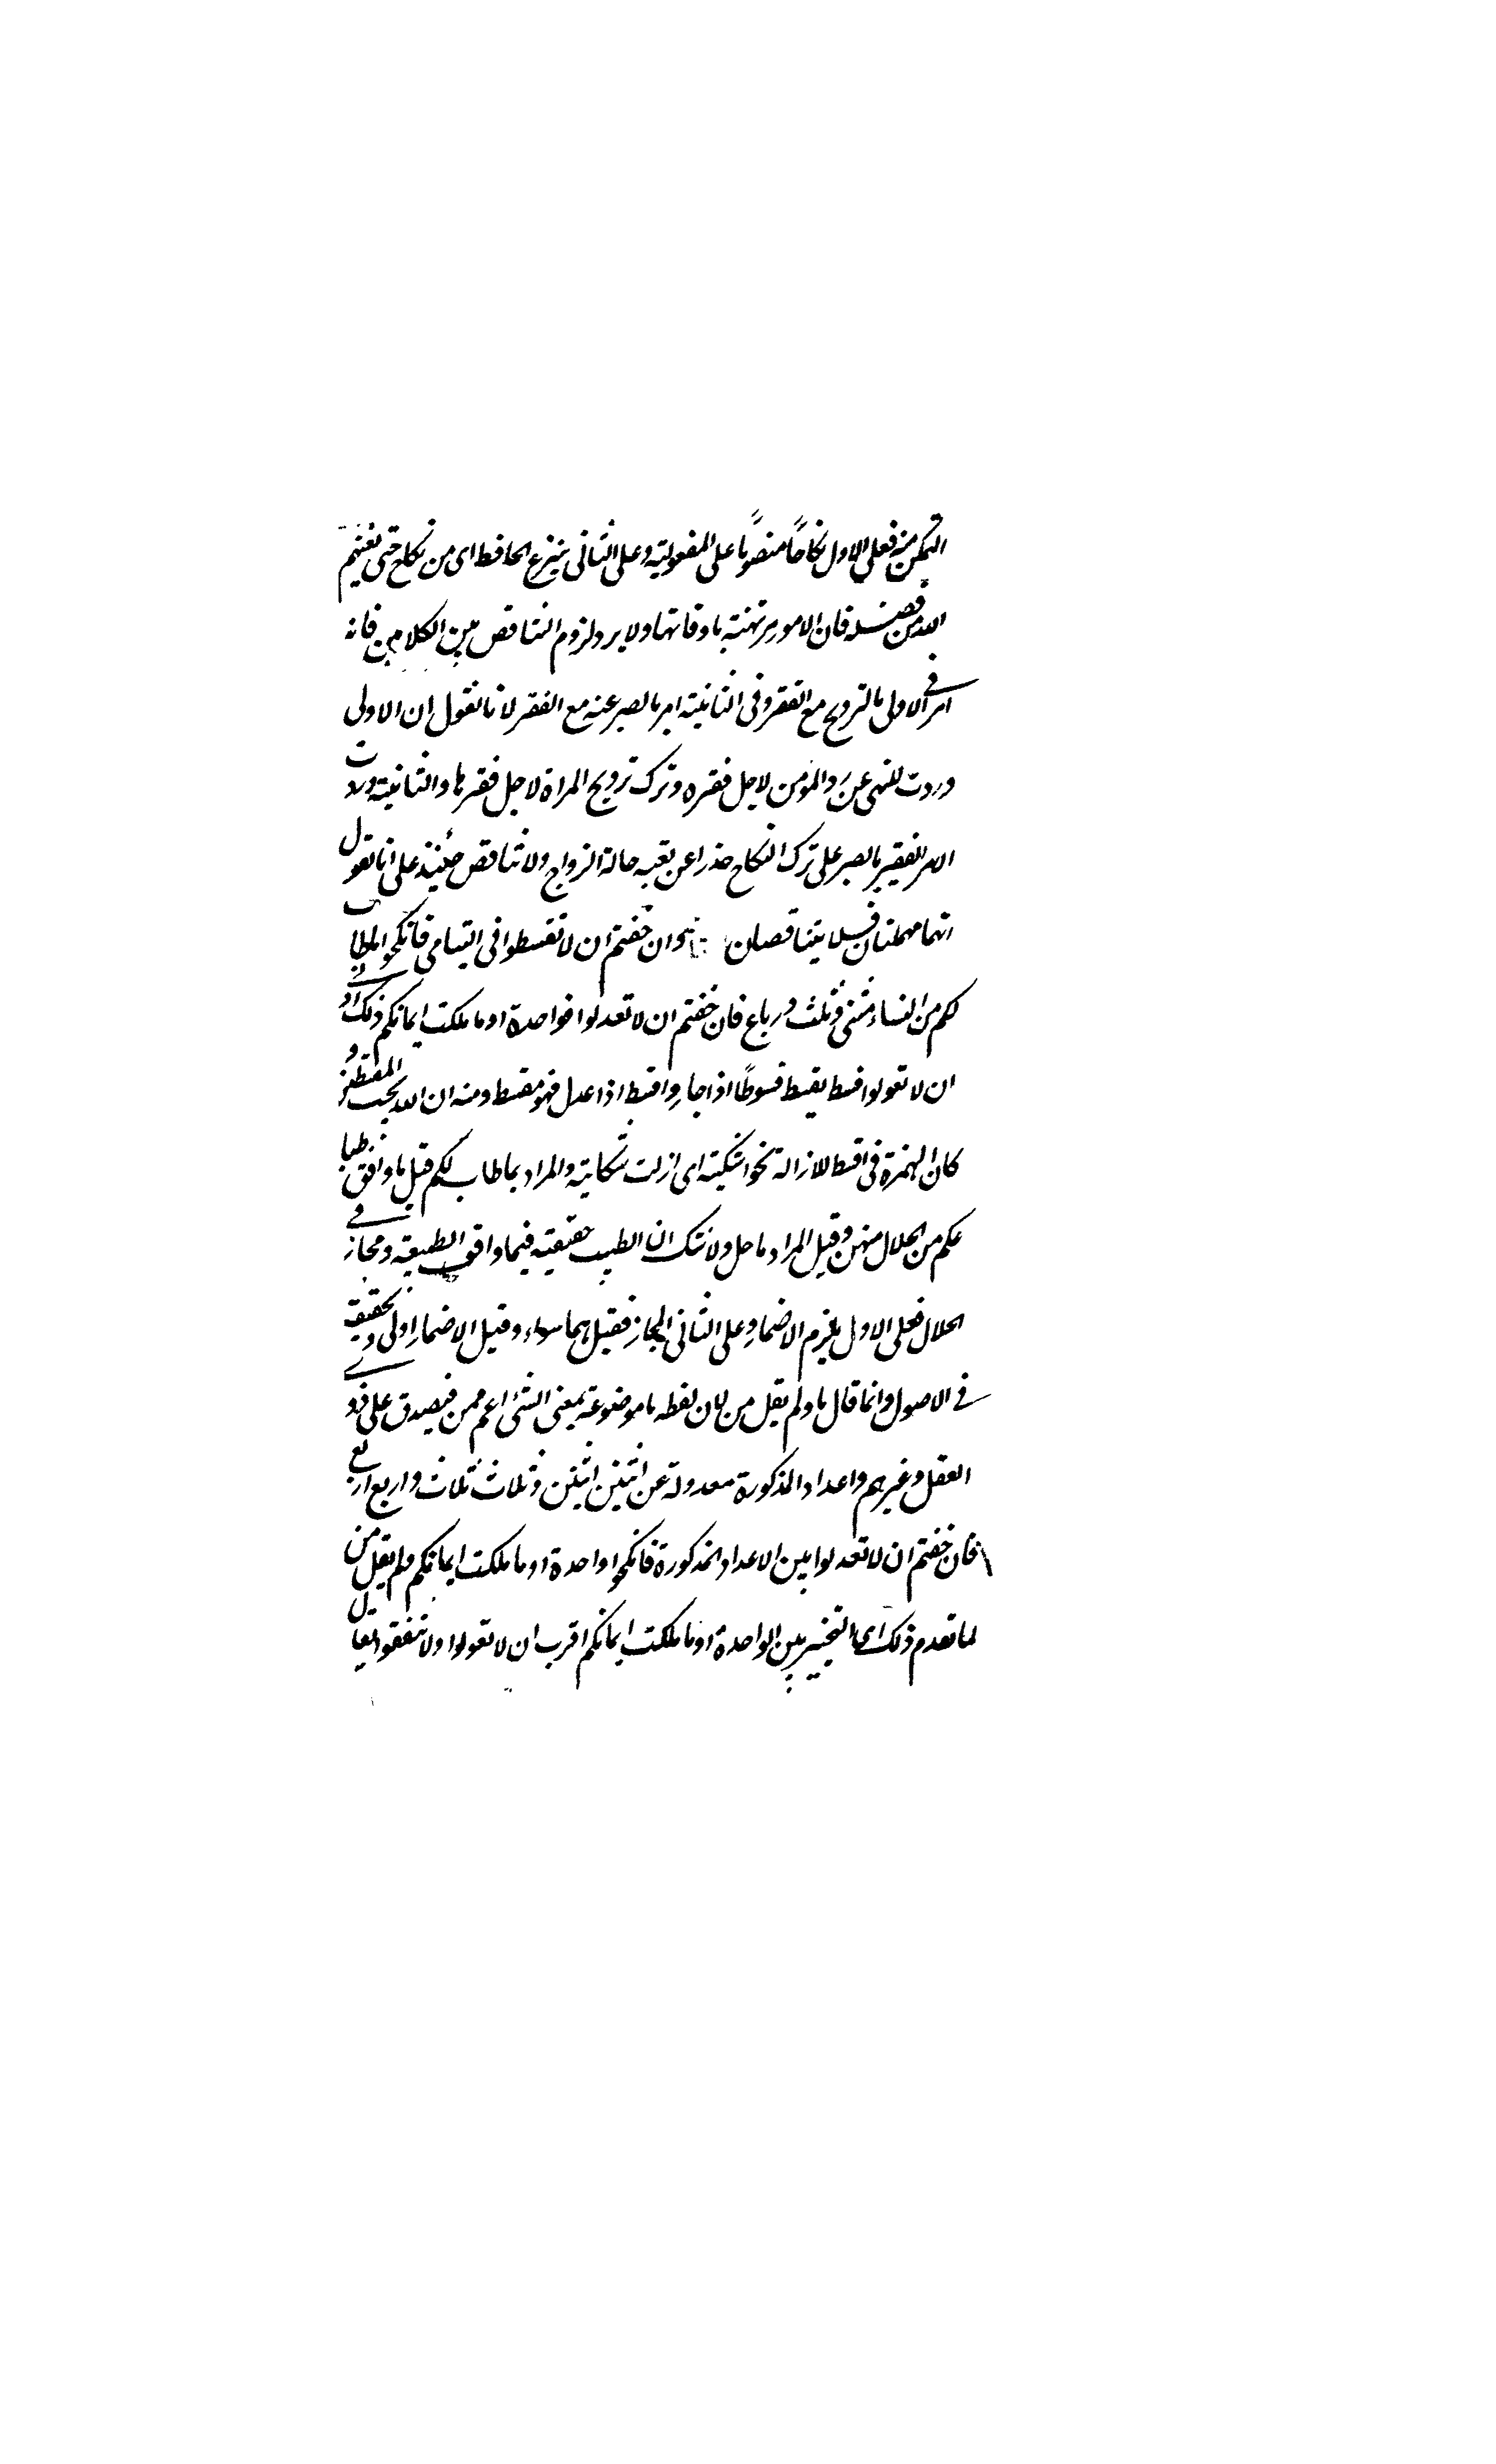 التمكن منه فعلى الاول نكاحًا منصوبًا على المفعولية وعلى الثانى بنزع الخافط اى من نكاح حتى يغنيهم
الله من فضله فان الامور مرتهنة باوقاتها ولا يرد لزوم التناقض بين الكلامين فانه
فى الاولى امر بالترويج مع الفقر وفى الثانية امر بالصبر عنه مع الفقر لانا نقول ان الاولى
وردت للنهى عن رد المؤمن لاجل فقره وترك ترويج المراة لاجل فقرها والثانية وردت
الامر للفقير بالصبر على ترك النكاح حذرا عن تعبه حالة الزواج ولا تناقض حينئذ على انا نقول
انهما مهملتان فلا يتناقصان وان خفتم ان لا تقسطوا فى اليتامى فانكحوا ما طاب
لكم من النساء مثنى وثلث ورباع فان خفتم ان لا تعدلوا فواحدة او ما ملكت ايمانكم ذلك ادنى
ان لا تعولوا قسط يقسط قسوطًا اذا جار واقسط اذا عدل فهو مقسط ومنه ان الله يحب المقسطين و
كان الهمزة فى اقسط للازالة نحو اشكيته اى ازلت شكايته والمراد بما طاب لكم قيل ما وافق طبا
عكم من الحلال منهن وقيل المراد ما حل ولا شك ان الطيب حقيقية فيما وافق الطبيعة ومجاز فى
الحلال فعلى الاول يلزم الاضمار وعلى الثانى المجاز فقيل هما سواء وقيل الاضمار اولى وتحقيقه
فى الاصول وانما قال ما ولم يقل من لان لفظه ما موضوعة بمعنى الشئ اعم ممن فيصدق على ذوى
العقل وغيرهم واعداد المذكورة معدولة عن اثنين اثنين وثلاث ثلاث واربع اربع
فان خفتم ان لا تعدلوا بين الاعداد المذكورة فانكحوا واحدة او ما ملكت ايمانكم ولم يقل من
لما تقدم ذلك اى التخيير بين الواحدة او ما ملكت ايمانكم اقرب ان لا تعولوا ولا تنفقوا يقال